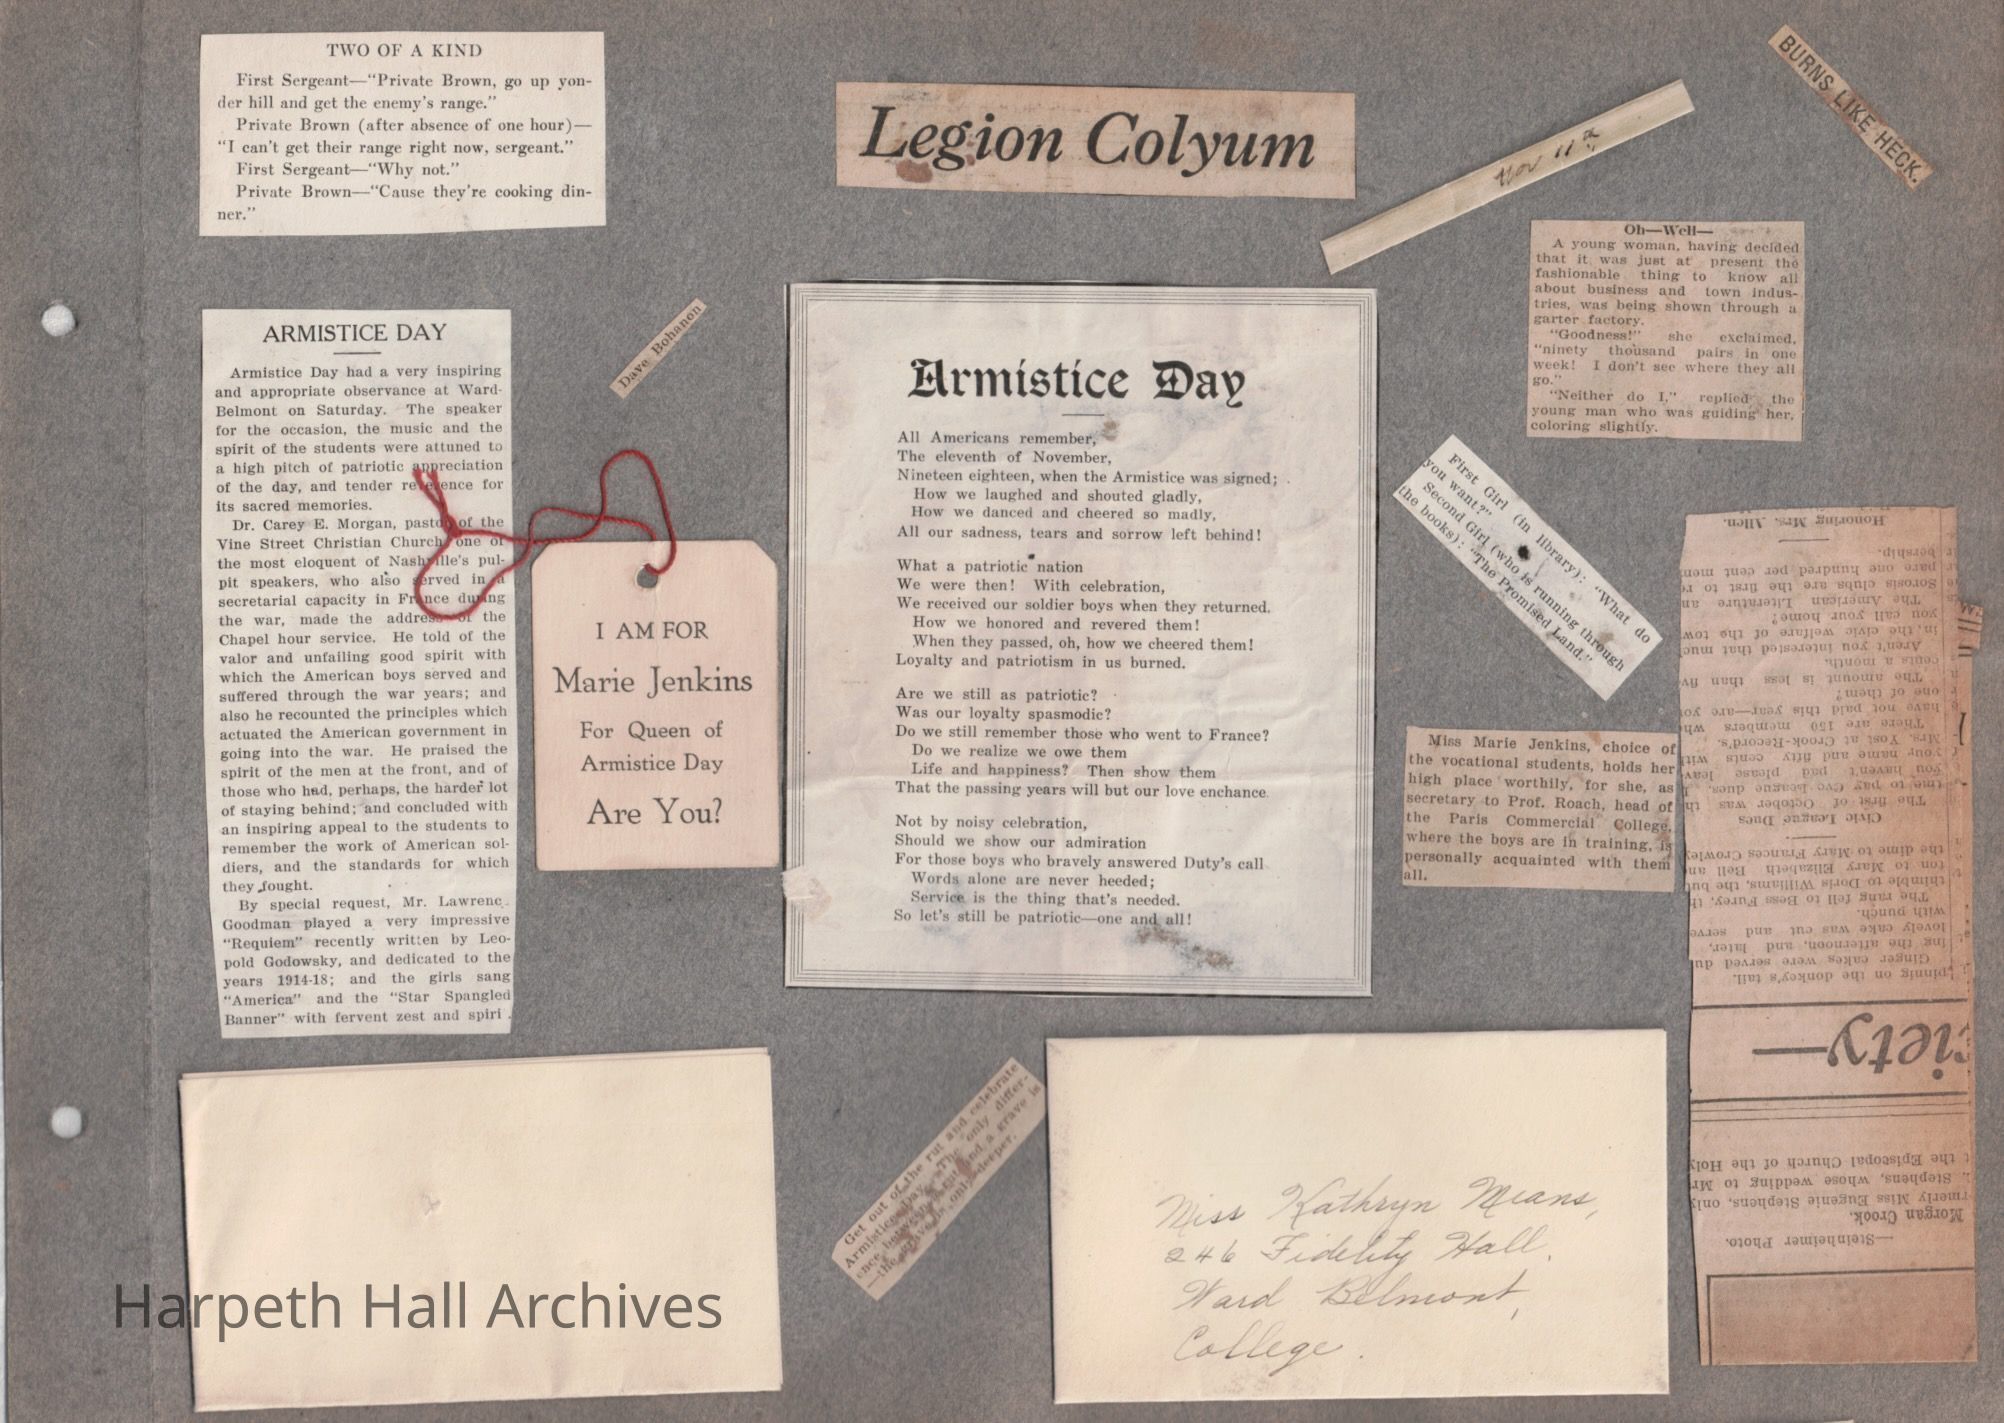 TWO OF A KIND
First Sergeant—“Private Brown, go up yon-
der hill and get the enemy's range.”
Private Brown (after absence of one hour)—
“I can't get their range right now, sergeant.”
First Sergeant—“Why not.”
Private Brown—“Cause they're cooking din-
ner.”
Legion Colyum
Nov 11th
BURNS LIKE HECK.
Oh—Well—
A young woman, having decided
that it was just at present the
fashionable thing to know all
about business and town indus-
tries, was being shown through a
garter factory.
“Goodness!” she exclaimed,
“ninety thousand pairs in one
week! I don't see where they all
go.”
“Neither do I,” replied the
young man who was guiding her,
coloring slightly.
ARMISTICE DAY
Armistice Day had a very inspiring
and appropriate observance at Ward-
Belmont on Saturday. The speaker
for the occasion, the music and the
spirit of the students were attuned to
a high pitch of patriotic appreciation
of the day, and tender reverence for
its sacred memories.
Dr. Carey E. Morgan, pastor of the
Vine Street Christian Church, one of
the most eloquent of Nashville's pul-
pit speakers, who also served in a
secretarial capacity in France during
the war, made the address of the
Chapel hour service. He told of the
valor and unfailing good spirit with
which the American boys served and
suffered through the war years; and
also he recounted the principles which
actuated the American government in
going into the war. He praised the
spirit of the men at the front, and of
those who had, perhaps, the harder lot
of staying behind; and concluded with
an inspiring appeal to the students to
remember the work of American sol-
diers, and the standards for which
they fought.
By special request, Mr. Lawrenc
Goodman played a very impressive
“Requiem” recently written by Leo-
pold Godowsky, and dedicated to the
years 1914-18; and the girls sang
“America” and the “Star Spangled
Banner” with fervent zest and spiri.
Dave Bohanon
I AM FOR
Marie Jenkins
For Queen of
Armistice Day
Are You?
Armistice Day
All Americans remember,
The eleventh of November,
Nineteen eighteen, when the Armistice was signed;
How we laughed and shouted gladly,
How we danced and cheered so madly,
All our sadness, tears and sorrow left behind!
What a patriotic nation
We were then! With celebration,
We received our soldier boys when they returned.
How we honored and revered them!
When they passed, oh, how we cheered them!
Loyalty and patriotism in us burned.
Are we still as patriotic?
Was our loyalty spasmodic?
Do we still remember those who went to France?
Do we realize we owe them
Life and happiness? Then show them
That the passing years will but our love enchance.
Not by noisy celebration,
Should we show our admiration
For those boys who bravely answered Duty's call
Words alone are never heeded;
Service is the thing that's needed.
So let's still be patriotic—one and all!
First Girl (in library): “What do
you want?”
Second Girl (who is running through
the books): “The Promised Land.”
Miss Marie Jenkins, choice of
the vocational students, holds her
high place worthily, for she, as
secretary to Prof. Roach, head of
the Paris Commercial College,
where the boys are in training, is
personally acquainted with them
all.
—Steinheimer Photo.
Morgan Crook,
rmerly Miss Eugenie Stephens, only
. Stephens, whose wedding to Mr.
t the Episcopal Church of the Holy
iety—
pinning on the donkey's tail.
Ginger cakes were served du
ing the afternoon, and later,
lovely cake was cut and serve
with punch.
The ring fell to Bess Furey, th
thimble to Doris Williams, the but
ton to Mary Elizabeth Bell an
the dime to Mary Frances Crowley
Civic League Dues
The first of October was th
time to pay Cvc League dues. I
you haven't paid please leave
your name and fifty cents with
Mrs. Yost at Crook-Record's.
There are 150 members wh
have not paid this year—are yo
one of them?
The amount is less than fiv
cents a month.
Aren't you interested that much
in the civic welfare of the tow
you call your home?
The American Literature an
Sorosis clubs are the first to re
pare one hundred per cent mem
bership.
Honoring Mrs. Allen.
Get out of the rut and celebrate
Armistice Day. The only differ-
ence between a rut and a grave is
—the grave is only deeper.
Miss Kathryn Means,
246 Fidelity Hall.
Ward Belmont,
College.
Harpeth Hall Archives